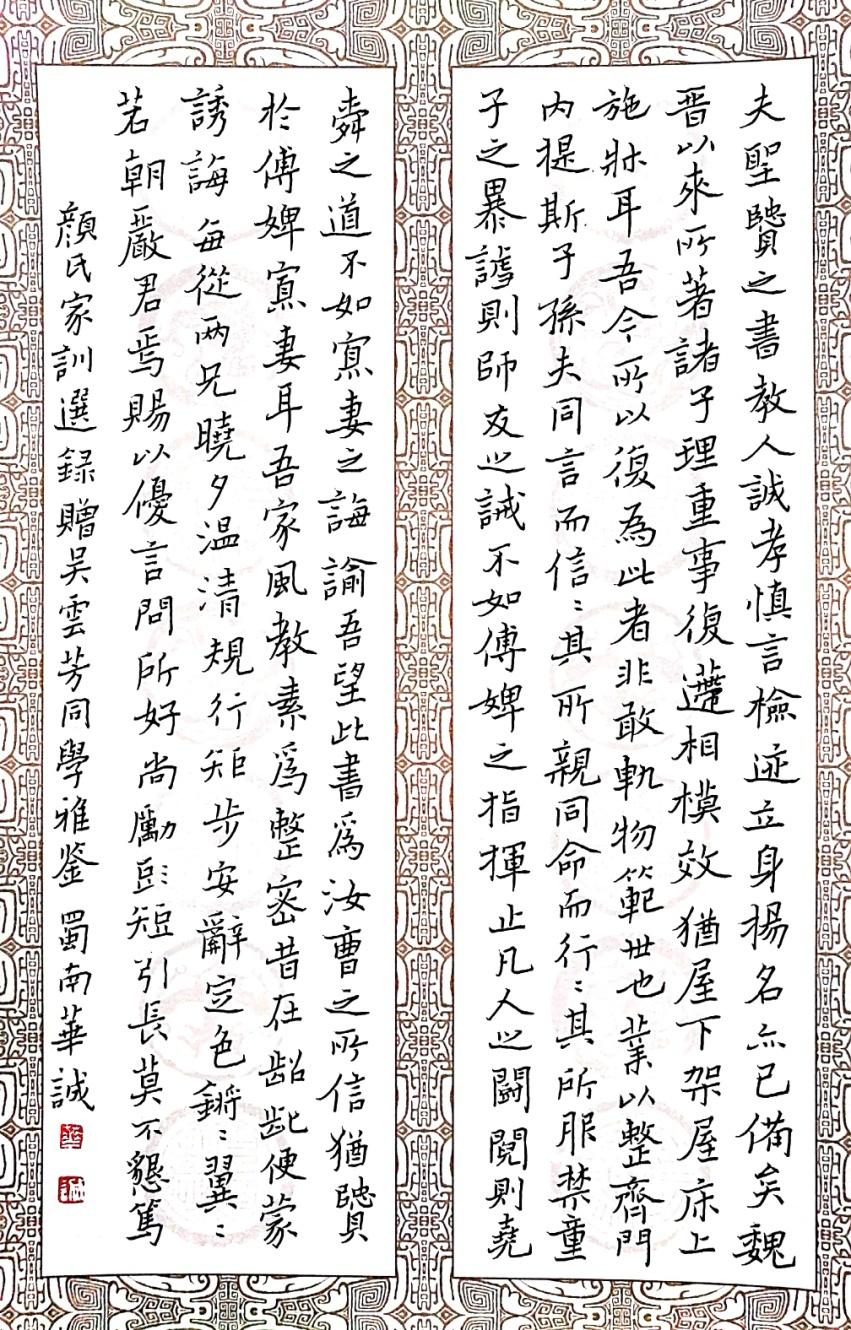 夫聖賢之書教人誠孝慎言檢迹立身揚名亦已備矣魏
晉以來所著諸子理重事復遞相模效猶屋下架屋床上
施牀耳吾今所以復為此者非敢軌物範世也業以整齊門
内提斯子孫夫同言而信〻其所親同命而行〻其所服禁童
子之暴謔則師友之誡不如傅婢之指揮止凡人之鬬䦧則堯
舜之道不如寡妻之誨諭吾望此書為汝曹之所信猶賢
於傅婢寡妻耳吾家風教素為整密昔在齠齔便蒙
誘誨每從兩兄曉夕温凊規行矩步安辭定色鏘〻翼〻
若朝嚴君焉賜以優言問所好尚勵彭短引長莫不懇篤
顏氏家訓選録贈吴雲芳同學雅鉴蜀南華誠
華
誠